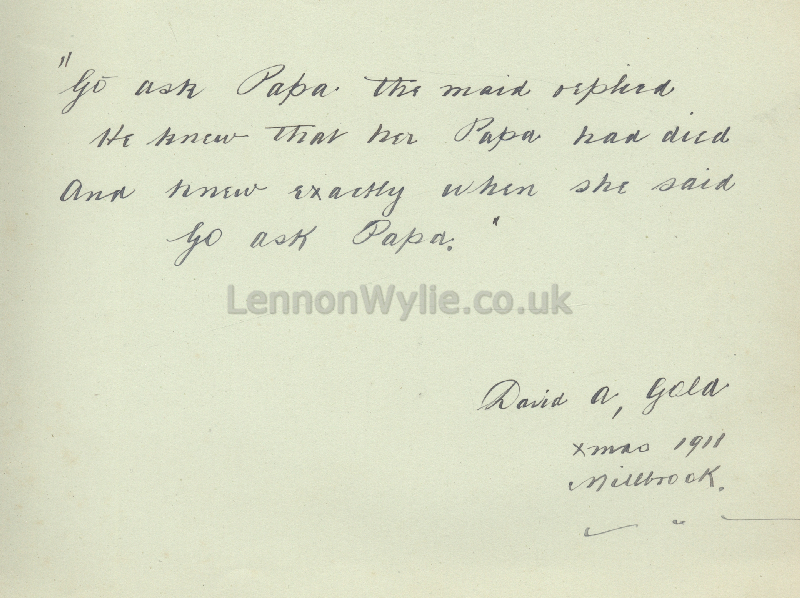 "Go ask Papa the maid replied
He knew that her Papa had died
And knew exactly when she said
Go ask Papa."
LennonWylie.co.uk
David A, Gold
Xmas 1911
Millbrook.